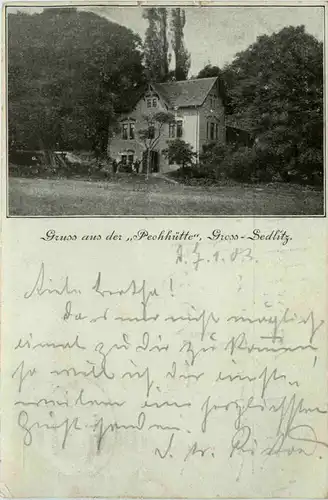 Gruss aus der „Pechhütte“, Gross-Sedlitz.
d. 7.1.03.
Liebe Bertha!
Da es mir nicht möglich
einmal zu dir zu kommen,
so will ich dir einst-
weilen eine herzlichsten
Gruß senden.